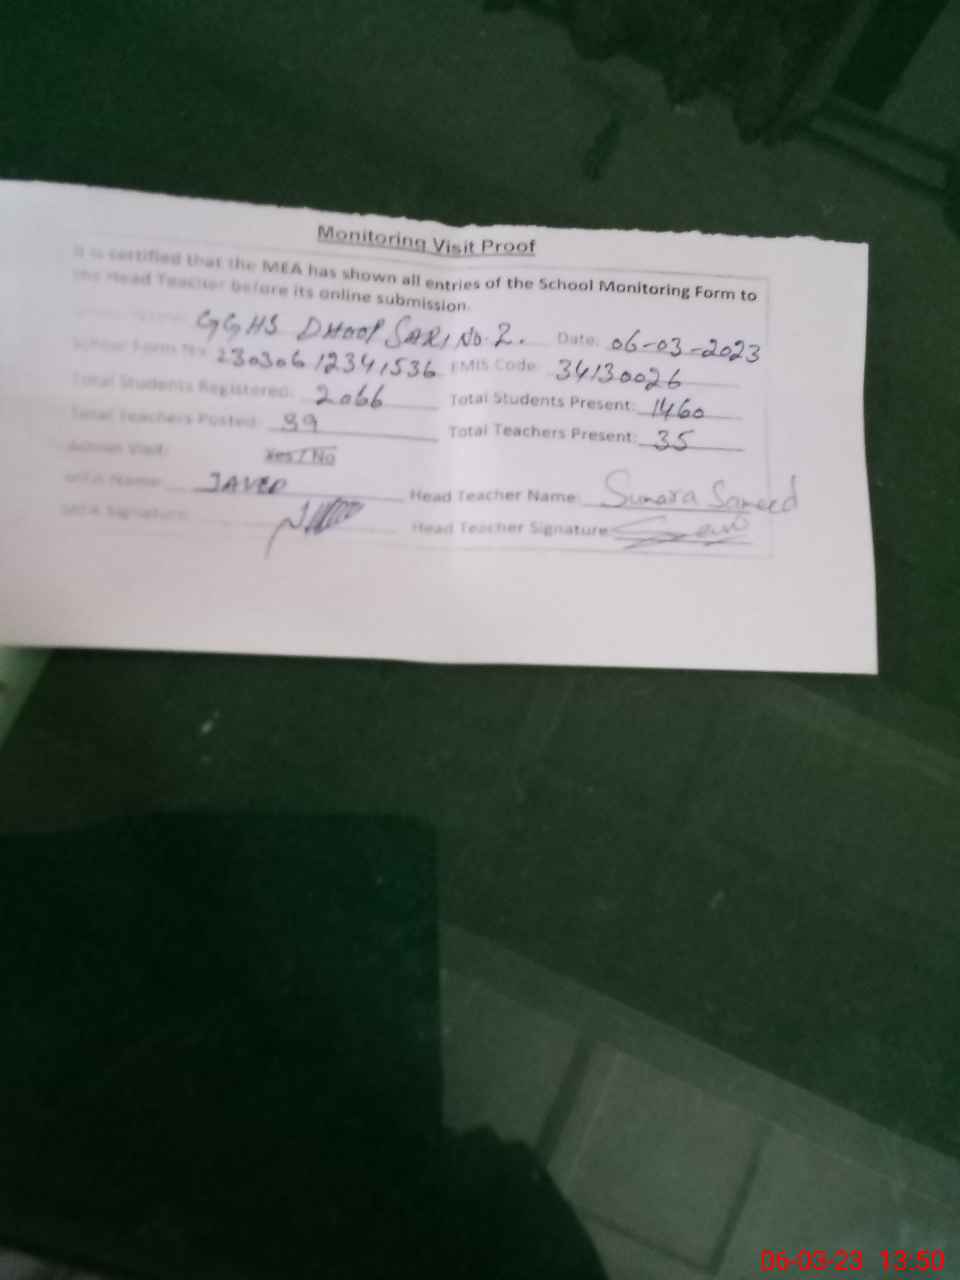 Monitoring Visit Proof
It is certified that the MEA has shown all entries of the School Monitoring Form to
the Head Teacher before its online submission.
School Name: GGHS DHOOP SARI No. 2. Date: 06-03-2023
School Form No: 23030612341536 EMIS Code: 34130026
Total Students Registered: 2066 Total Students Present: 1460
Total Teachers Posted: 39 Total Teachers Present: 35
Admin Visit: Yes / No
MEA Name: JAVED Head Teacher Name: Sumara Sameed
MEA Signature: Head Teacher Signature:
06-03-23 13:50